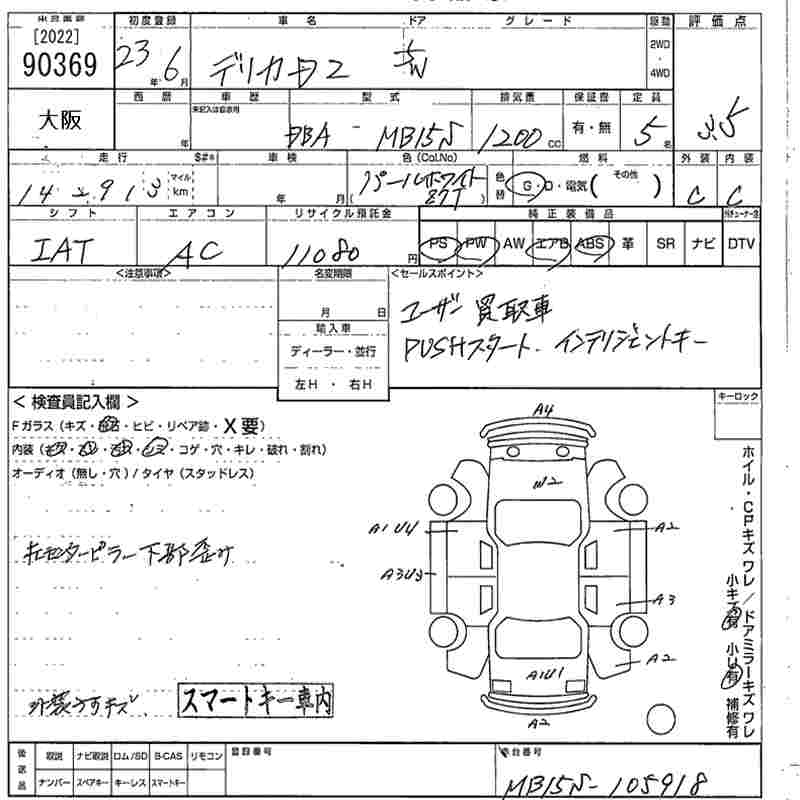 [2022]
90369
大阪
初度登録
23年 6月
車名
デリカD2
ドア
5W
グレード
駆動
2WD
4WD
評価点
3.5
西暦
年
車歴
未記入は自家用
型式
DBA - MB15S
排気量
1200 cc
保証書
有・無
定員
5名
走行
S#*
マイル
km
車検
年 月
色(Col.No)
パールホワイト
(        )
色替
燃料
G・D・電気( その他 )
外装
C
内装
C
シフト
IAT
エアコン
AC
リサイクル預託金
11080 円
純正装備品
PS PW AW エアB ABS 革 SR ナビ DTV
<注意事項>
名変期限
月 日
輸入車
ディーラー・並行
左H ・ 右H
<セールスポイント>
ユーザー買取車
PUSHスタート. インテリジェントキー
< 検査員記入欄 >
Fガラス (キズ・ ・ヒビ・リペア跡・X要)
・コゲ・穴・キレ・破れ・割れ)
オーディオ (無し・穴) / タイヤ (スタッドレス)
センターピラー下部歪み
外装うすキズ
スマートキー車内
キーロック
A4
W2
A1U4
A2
A3U3
A3
A2
A1U1
A2
ホイル・CPキズ ワレ / ドアミラーキズ ワレ
小キズ有 小U有 補修有
後送品
取説 ナビ取説 ロム/SD B-CAS リモコン
ナンバー スペアキー キーレス スマートキー
登録番号
車台番号
MB15S-105918